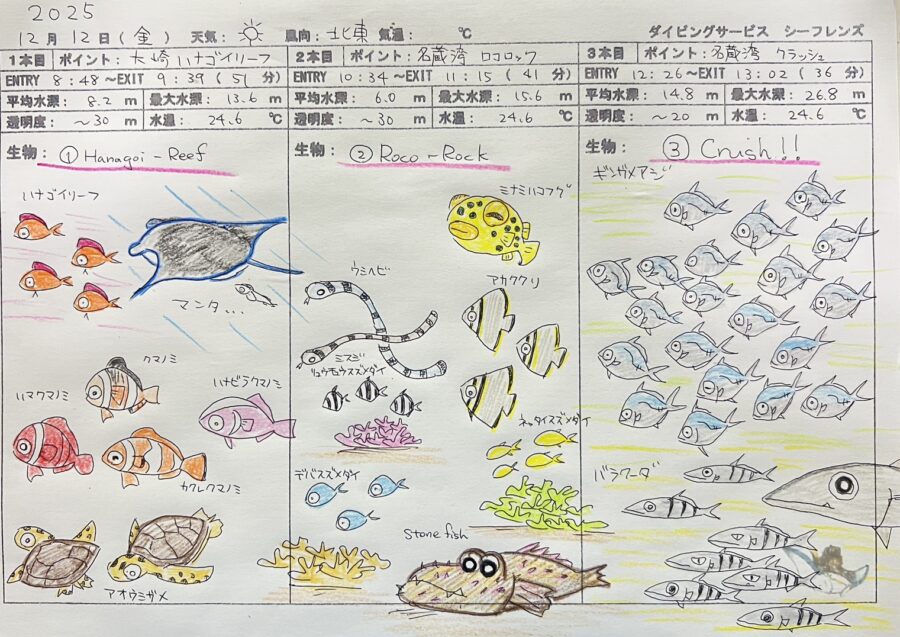 2025
12月 12日(金) 天気: 風向: 北東 気温: ℃ ダイビングサービス シーフレンズ
1本目 ポイント: 大崎 ハナゴイリーフ
ENTRY 8:48 ~EXIT 9:39 (51 分)
平均水深: 8.2 m 最大水深: 13.6 m
透明度: ~30 m 水温: 24.6 ℃
生物: ① Hanagoi-Reef
ハナゴイリーフ
マンタ...
クマノミ
ハマクマノミ
ハナビラクマノミ
カクレクマノミ
アオウミガメ
2本目 ポイント: 名蔵湾 ロコロック
ENTRY 10:34 ~EXIT 11:15 (41 分)
平均水深: 6.0 m 最大水深: 15.6 m
透明度: ~30 m 水温: 24.6 ℃
生物: ② Roco-Rock
ミナミハコフグ
ウミヘビ
アカククリ
ミスジ
リュウキュウスズメダイ
ネッタイスズメダイ
デバスズメダイ
Stone fish
3本目 ポイント: 名蔵湾 クラッシュ
ENTRY 12:26 ~EXIT 13:02 (36 分)
平均水深: 14.8 m 最大水深: 26.8 m
透明度: ~20 m 水温: 24.6 ℃
生物: ③ Crush!!
ギンガメアジ
バラクーダ